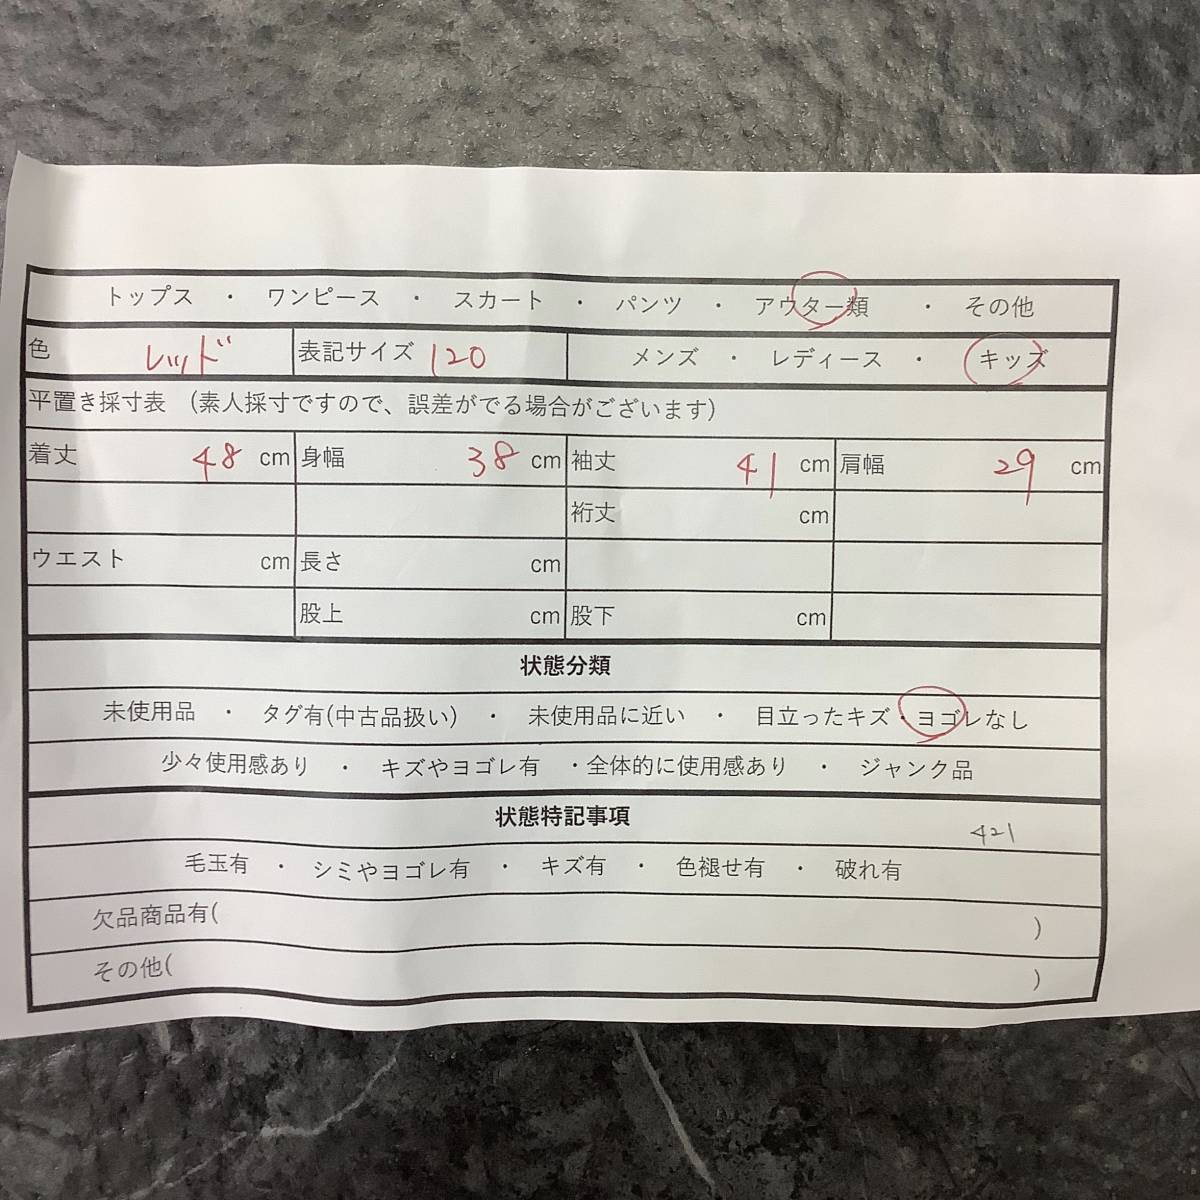 トップス ・ ワンピース ・ スカート ・ パンツ ・ アウター類 ・ その他
色 レッド 表記サイズ 120 メンズ ・ レディース ・ キッズ
平置き採寸表 (素人採寸ですので、誤差がでる場合がございます)
着丈 48 cm 身幅 38 cm 袖丈 41 cm 肩幅 29 cm
裄丈 cm
ウエスト cm 長さ cm
股上 cm 股下 cm
状態分類
未使用品 ・ タグ有(中古品扱い) ・ 未使用品に近い ・ 目立ったキズ・ヨゴレなし
少々使用感あり ・ キズやヨゴレ有 ・全体的に使用感あり ・ ジャンク品
状態特記事項 421
毛玉有 ・ シミやヨゴレ有 ・ キズ有 ・ 色褪せ有 ・ 破れ有
欠品商品有( )
その他( )